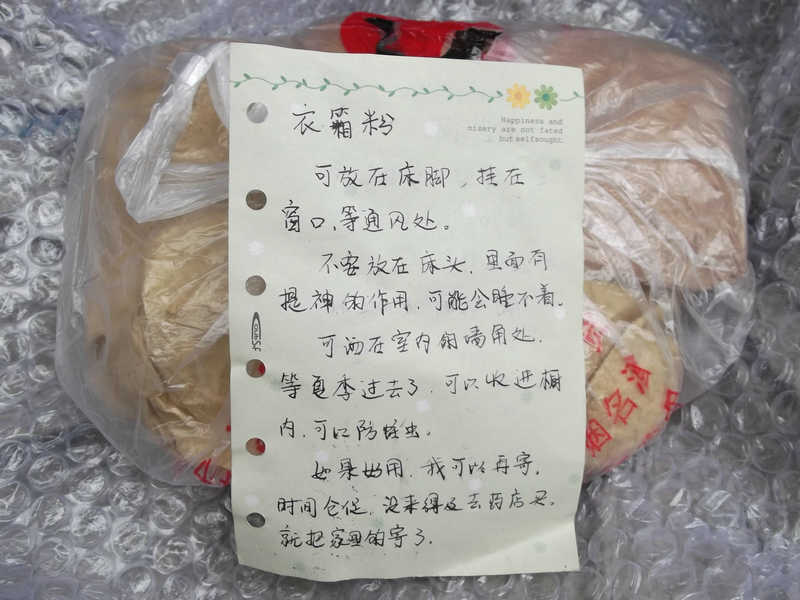 Happiness and
misery are not fated
but selfsought
衣箱粉
可放在床脚，挂在
窗口、等通风处。
不要放在床头，里面有
提神的作用，可能会睡不着。
可洒在室内的墙角处.
等夏季过去了，可以收进橱
内，可以防蛀虫。
如果好用，我可以再寄.
时间仓促，没来得及去药店买.
就把家里的寄了.